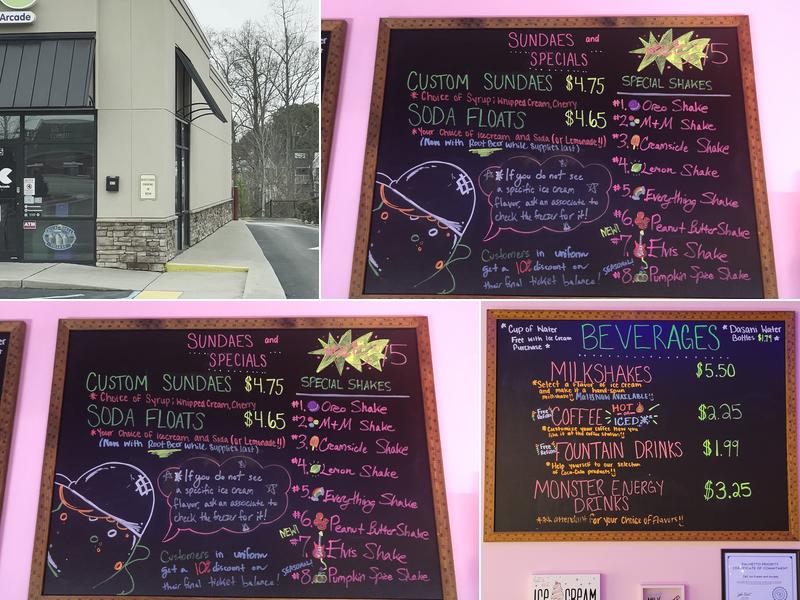 Arcade
ATM
SUNDAES and
SPECIALS
CUSTOM SUNDAES $4.75
* Choice of Syrup; Whipped Cream, Cherry
SODA FLOATS $4.65
*Your Choice of Icecream and Soda (or Lemonade!!)
(Now with Root Beer while Supplies last)
*If you do not see
a specific ice cream
flavor, ask an associate to
check the freezer for it!
Customers in uniform
get a 10% discount on
their final ticket balance!
SPECIAL SHAKES
#1. Oreo Shake
#2. M+M Shake
#3. Creamsicle Shake
#4. Lemon Shake
#5. Everything Shake
#6. Peanut Butter Shake
NEW!
#7. Elvis Shake
SEASONAL!
#8. Pumpkin Spice Shake
SUNDAES and
SPECIALS
CUSTOM SUNDAES $4.75
* Choice of Syrup; Whipped Cream, Cherry
SODA FLOATS $4.65
*Your Choice of Icecream and Soda (or Lemonade!!)
(Now with Root Beer while Supplies last)
*If you do not see
a specific ice cream
flavor, ask an associate to
check the freezer for it!
Customers in uniform
get a 10% discount on
their final ticket balance!
SPECIAL SHAKES
#1. Oreo Shake
#2. M+M Shake
#3. Creamsicle Shake
#4. Lemon Shake
#5. Everything Shake
#6. Peanut Butter Shake
NEW!
#7. Elvis Shake
SEASONAL!
#8. Pumpkin Spice Shake
* Cup of Water
Free with Ice Cream
Purchase *
BEVERAGES
* Dasani Water
Bottles $1.79 *
MILKSHAKES $5.50
*Select a flavor of ice cream
and make it a hand-spun
milkshake!! Malts NOW AVAILABLE!!
Free Refills!
COFFEE HOT or ICED $2.25
*Customize your coffee how you
like it at the coffee station!!
Free Refills!
FOUNTAIN DRINKS $1.99
*Help yourself to our selection
of Coca-Cola products!!
MONSTER ENERGY
DRINKS $3.25
attendant for your choice of Flavors!!
ICE CREAM
MILK
CERTIFICATE OF COMMITMENT